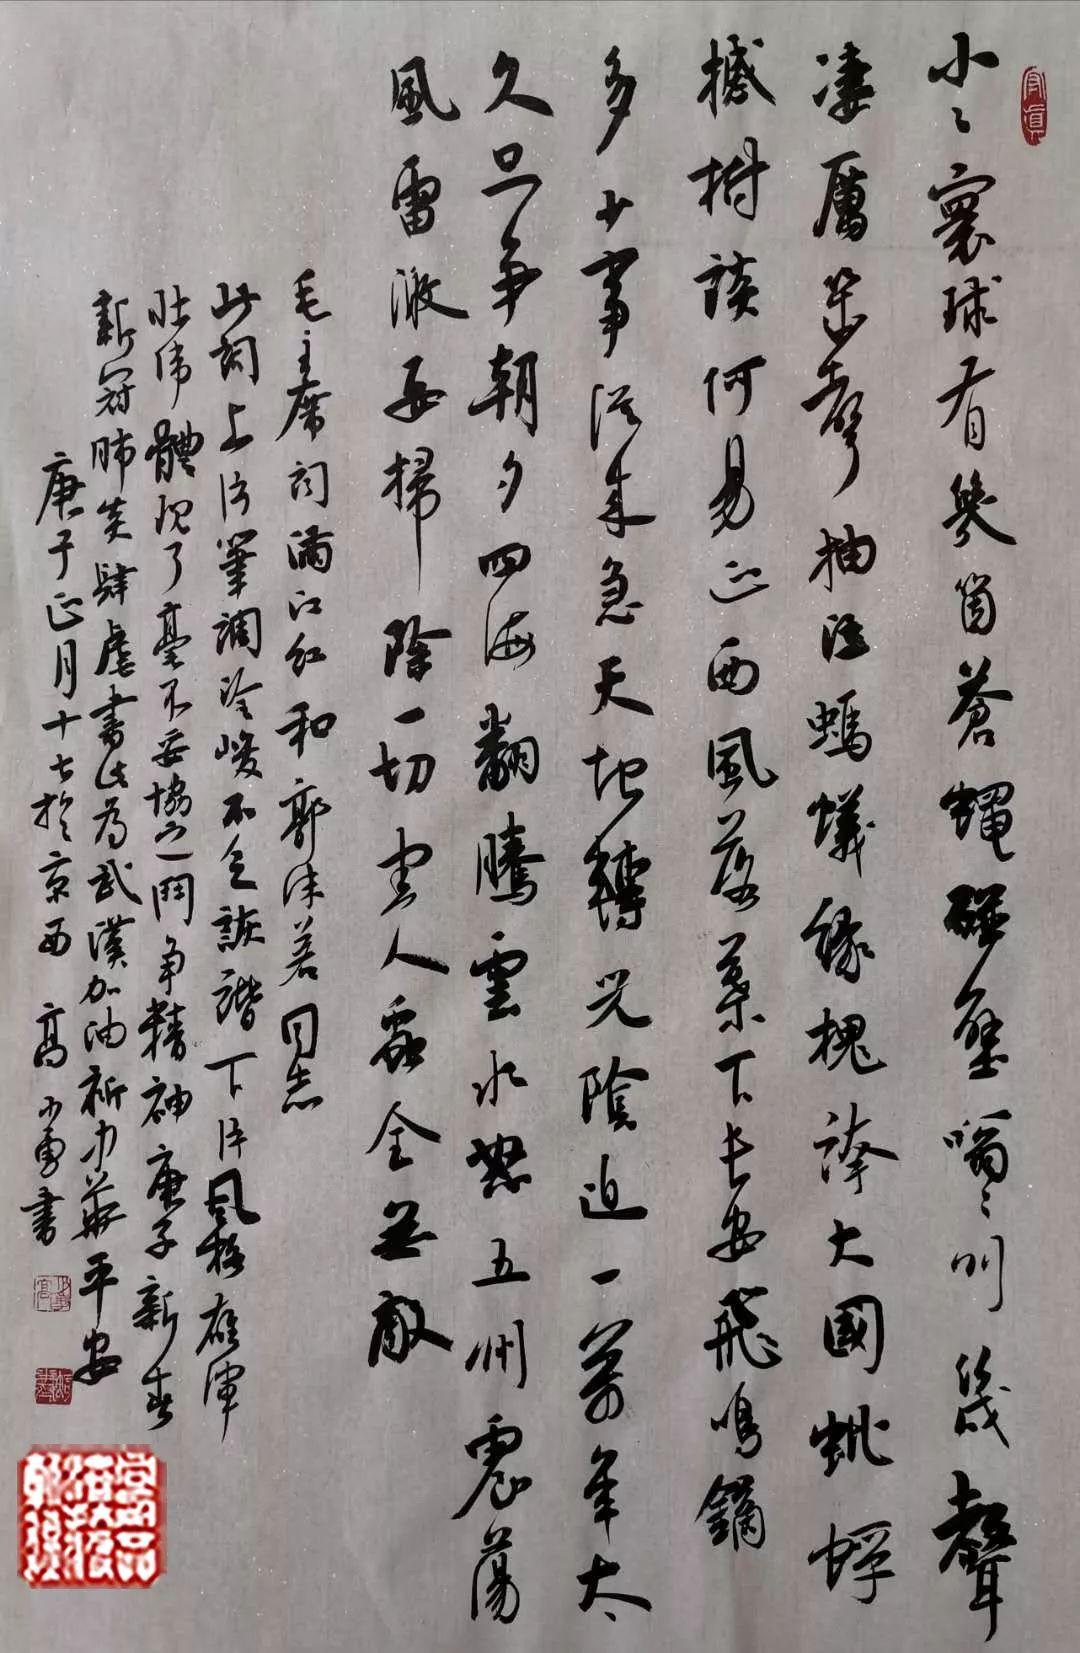 小々寰球有幾箇蒼蠅碰壁嗡々叫幾聲
凄厲幾聲抽泣螞蟻緣槐誇大國蚍蜉
撼樹談何易正西風落葉下長安飛鳴鏑
多少事從来急天地轉光陰迫一萬年太
久只争朝夕四海翻騰雲水怒五州震蕩
風雷激要掃除一切害人蟲全無敵
毛主席詞滿江红和郭沫若同志
此詞上片筆調冷峻不乏詼諧下片風格雄渾
壯偉體現了毫不妥協之鬥争精神庚子新春
新冠肺炎肆虐書此為武漢加油祈中華平安
庚子正月十七於京西 高少勇書